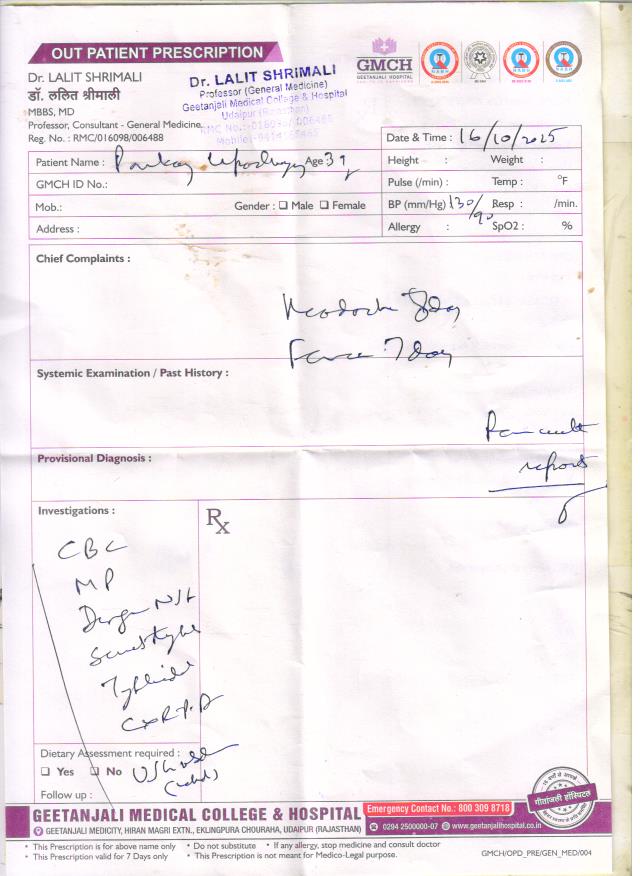 OUT PATIENT PRESCRIPTION
Dr. LALIT SHRIMALI
डॉ. ललित श्रीमाली
MBBS, MD
Professor, Consultant - General Medicine
Reg. No. : RMC/016098/006488
Dr. LALIT SHRIMALI
Professor (General Medicine)
Geetanjali Medical College & Hospital
Udaipur (Rajasthan)
GMCH
GEETANJALI HOSPITAL
Date & Time : 16/10/2025
Patient Name : Age 39
Height : Weight :
GMCH ID No.:
Pulse (/min) : Temp : °F
Mob.: Gender : Male Female
BP (mm/Hg) 130/90 Resp : /min.
Address :
Allergy : SpO2 : %
Chief Complaints :
7 day
Systemic Examination / Past History :
reports
Provisional Diagnosis :
Investigations :
Rx
CBC
MP
Dietary Assessment required :
Yes No
Follow up :
GEETANJALI MEDICAL COLLEGE & HOSPITAL
GEETANJALI MEDICITY, HIRAN MAGRI EXTN., EKLINGPURA CHOURAHA, UDAIPUR (RAJASTHAN)
Emergency Contact No.: 800 309 8718
0294 2500000-07 www.geetanjalihospital.co.in
गीतांजली हॉस्पिटल
• This Prescription is for above name only • Do not substitute • If any allergy, stop medicine and consult doctor
• This Prescription valid for 7 Days only • This Prescription is not meant for Medico-Legal purpose.
GMCH/OPD_PRE/GEN_MED/004